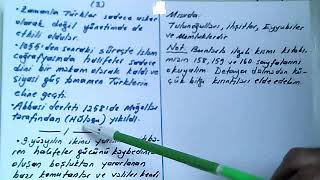 (3)
- Zamanla Türkler sadece asker
olarak değil yönetimde de
etkili oldular.
- 1055'den sonraki süreçte İslam
coğrafyasında halifeler sadece
dini bir makam olarak kaldı ve
siyasi güç tamamen Türklerin
eline geçti.
- Abbasi devleti 1258'de Moğollar
tarafından (Hülagu) yıkıldı.
- 9. yüzyılın ikinci
ren halifeler gücünü kaybedince
oluşan boşluktan yararlanan
bazı komutanlar ve valiler kendi
Mısırda:
Tulunoğulları, ihşitler, Eyyubiler
ve Memlüklerdir.
Not. Bununla ilgili kısmı kitabı-
mızın 158, 159 ve 160 sayfalarını
okuyalım Detaya dalmadan küçük
bilgi kırıntıları elde edelim.